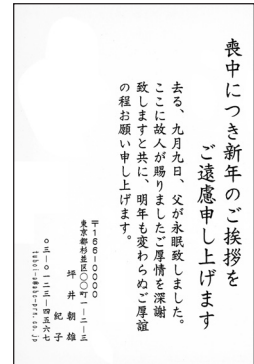 喪中につき新年のご挨拶を
ご遠慮申し上げます
去る、九月九日、父が永眠致しました。
ここに故人が賜りましたご厚情を深謝
致しますと共に、明年も変わらぬご厚誼
の程お願い申し上げます。
〒166-0000
東京都杉並区〇〇町一-二-三
坪井 朝雄
紀子
〇三-〇一二三-四五六七
tuboi-a@abc-pro.co.jp